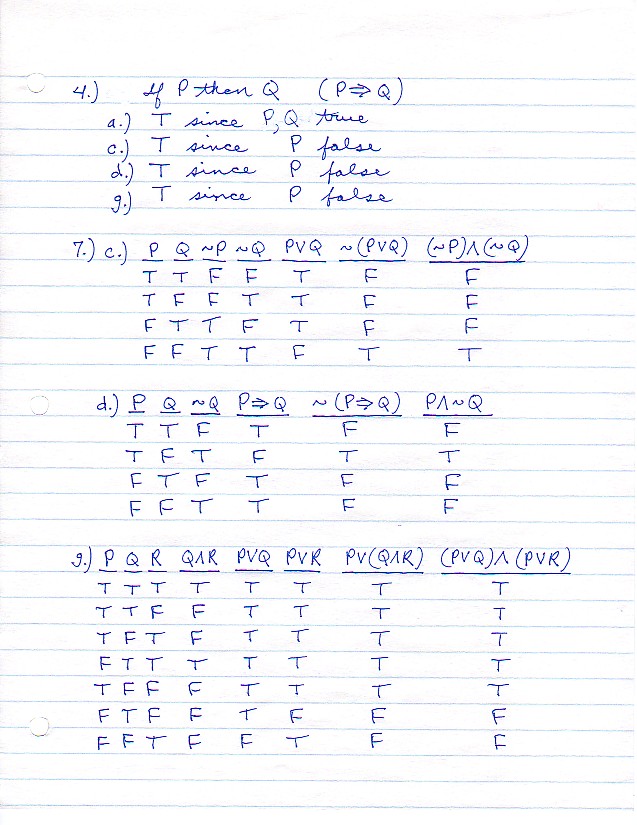 4.) If P then Q (P⇒Q)
a.) T since P, Q true
c.) T since P false
d.) T since P false
g.) T since P false
7.) c.) P Q ~P ~Q P∨Q ~(P∨Q) (~P)∧(~Q)
T T F F T F F
T F F T T F F
F T T F T F F
F F T T F T T
d.) P Q ~Q P⇒Q ~(P⇒Q) P∧~Q
T T F T F F
T F T F T T
F T F T F F
F F T T F F
g.) P Q R Q∧R P∨Q P∨R P∨(Q∧R) (P∨Q)∧(P∨R)
T T T T T T T T
T T F F T T T T
T F T F T T T T
F T T T T T T T
T F F F T T T T
F T F F T F F F
F F T F F T F F